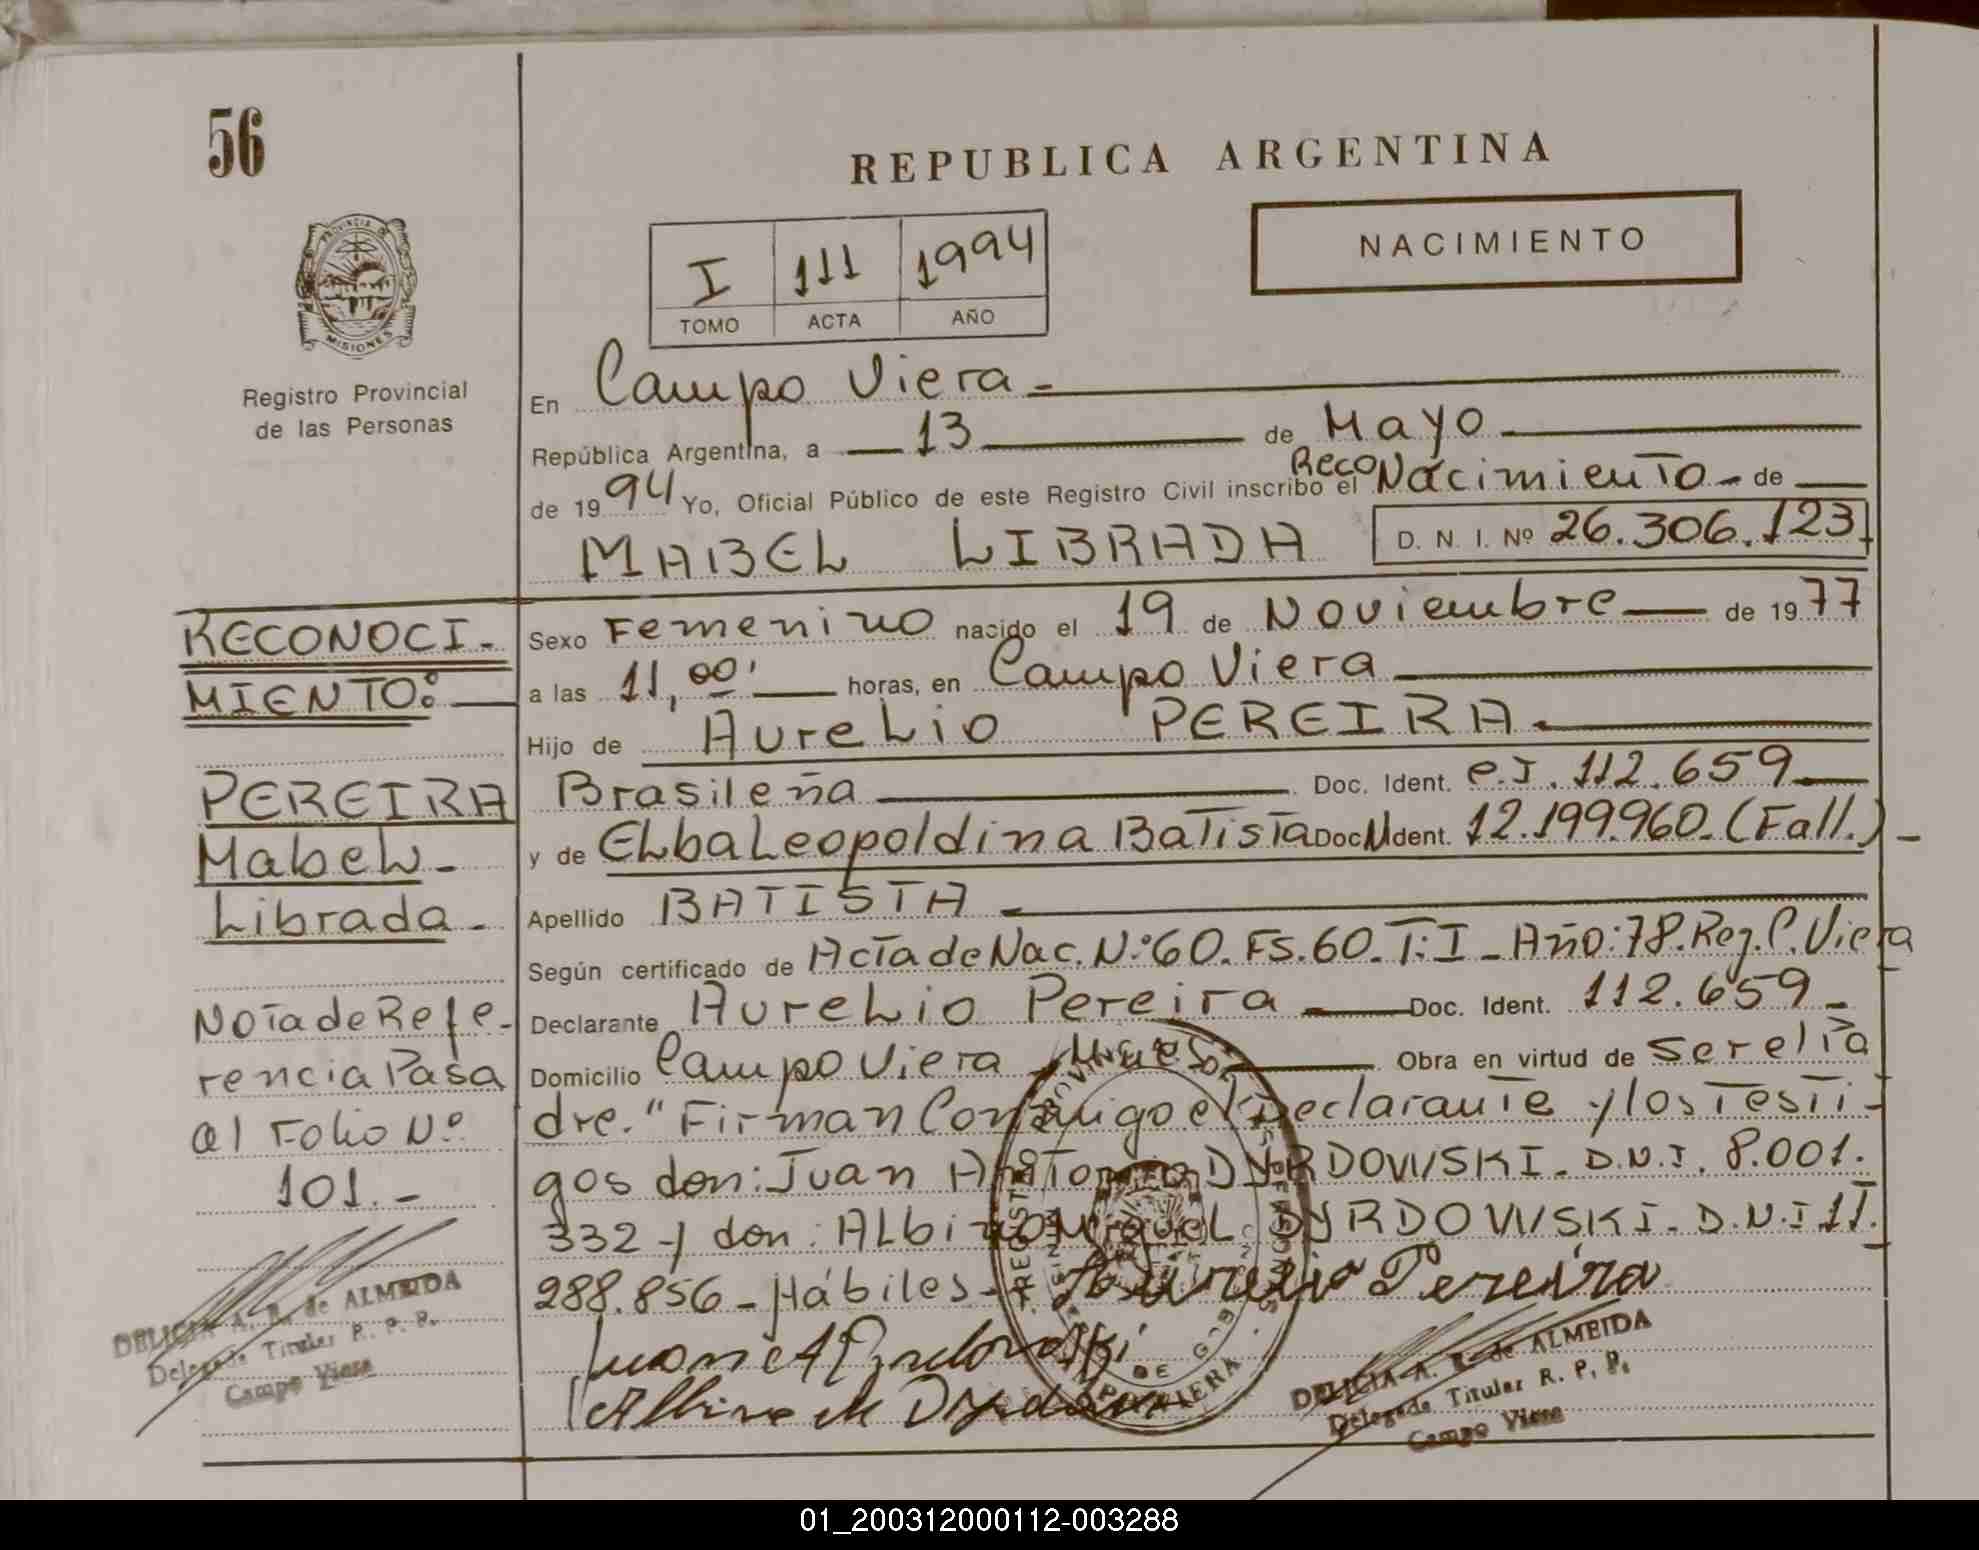 56
REPUBLICA ARGENTINA
NACIMIENTO
I 111 1994
TOMO ACTA AÑO
PROVINCIA DE
MISIONES
Registro Provincial
de las Personas
En Campo Viera -
República Argentina, a 13 de Mayo
de 1994 Yo, Oficial Público de este Registro Civil inscribo el RecoNacimiento - de
MABEL LIBRADA D. N. I. Nº 26.306.123
Sexo Femenino nacido el 19 de Noviembre de 1977
a las 11,00' horas, en Campo Viera
Hijo de Aurelio PEREIRA
Brasileña Doc. Ident. C.I. 112.659
y de Elba Leopoldina Batista Doc. Ident. 12.199.960. (Fall.) -
Apellido BATISTA -
Según certificado de Acta de Nac. N:º 60. Fs. 60. T: I - Año: 78. Reg. C. Viera
Declarante Aurelio Pereira Doc. Ident. 112.659 -
Domicilio Campo Viera Mnes. Obra en virtud de Ser el Pa
dre." Firman Conmigo el Declarante y los Testi-
gos don: Juan Antonio DYRDOWSKI - D.N.I. 8.001.
332 - y don: Albino Miguel DYRDOWSKI - D.N.I 11.
288.856 - Hábiles -
Aurelio Pereira
RECONOCI-
MIENTO:
PEREIRA
Mabel -
Librada -
Nota de Refe-
rencia Pasa
al Folio Nº
101. -
DELICIA A. R. de ALMEIDA
Delegada Titular R. P. P.
Campo Viera
DELICIA A. R. de ALMEIDA
Delegada Titular R. P. P.
Campo Viera
01_200312000112-003288